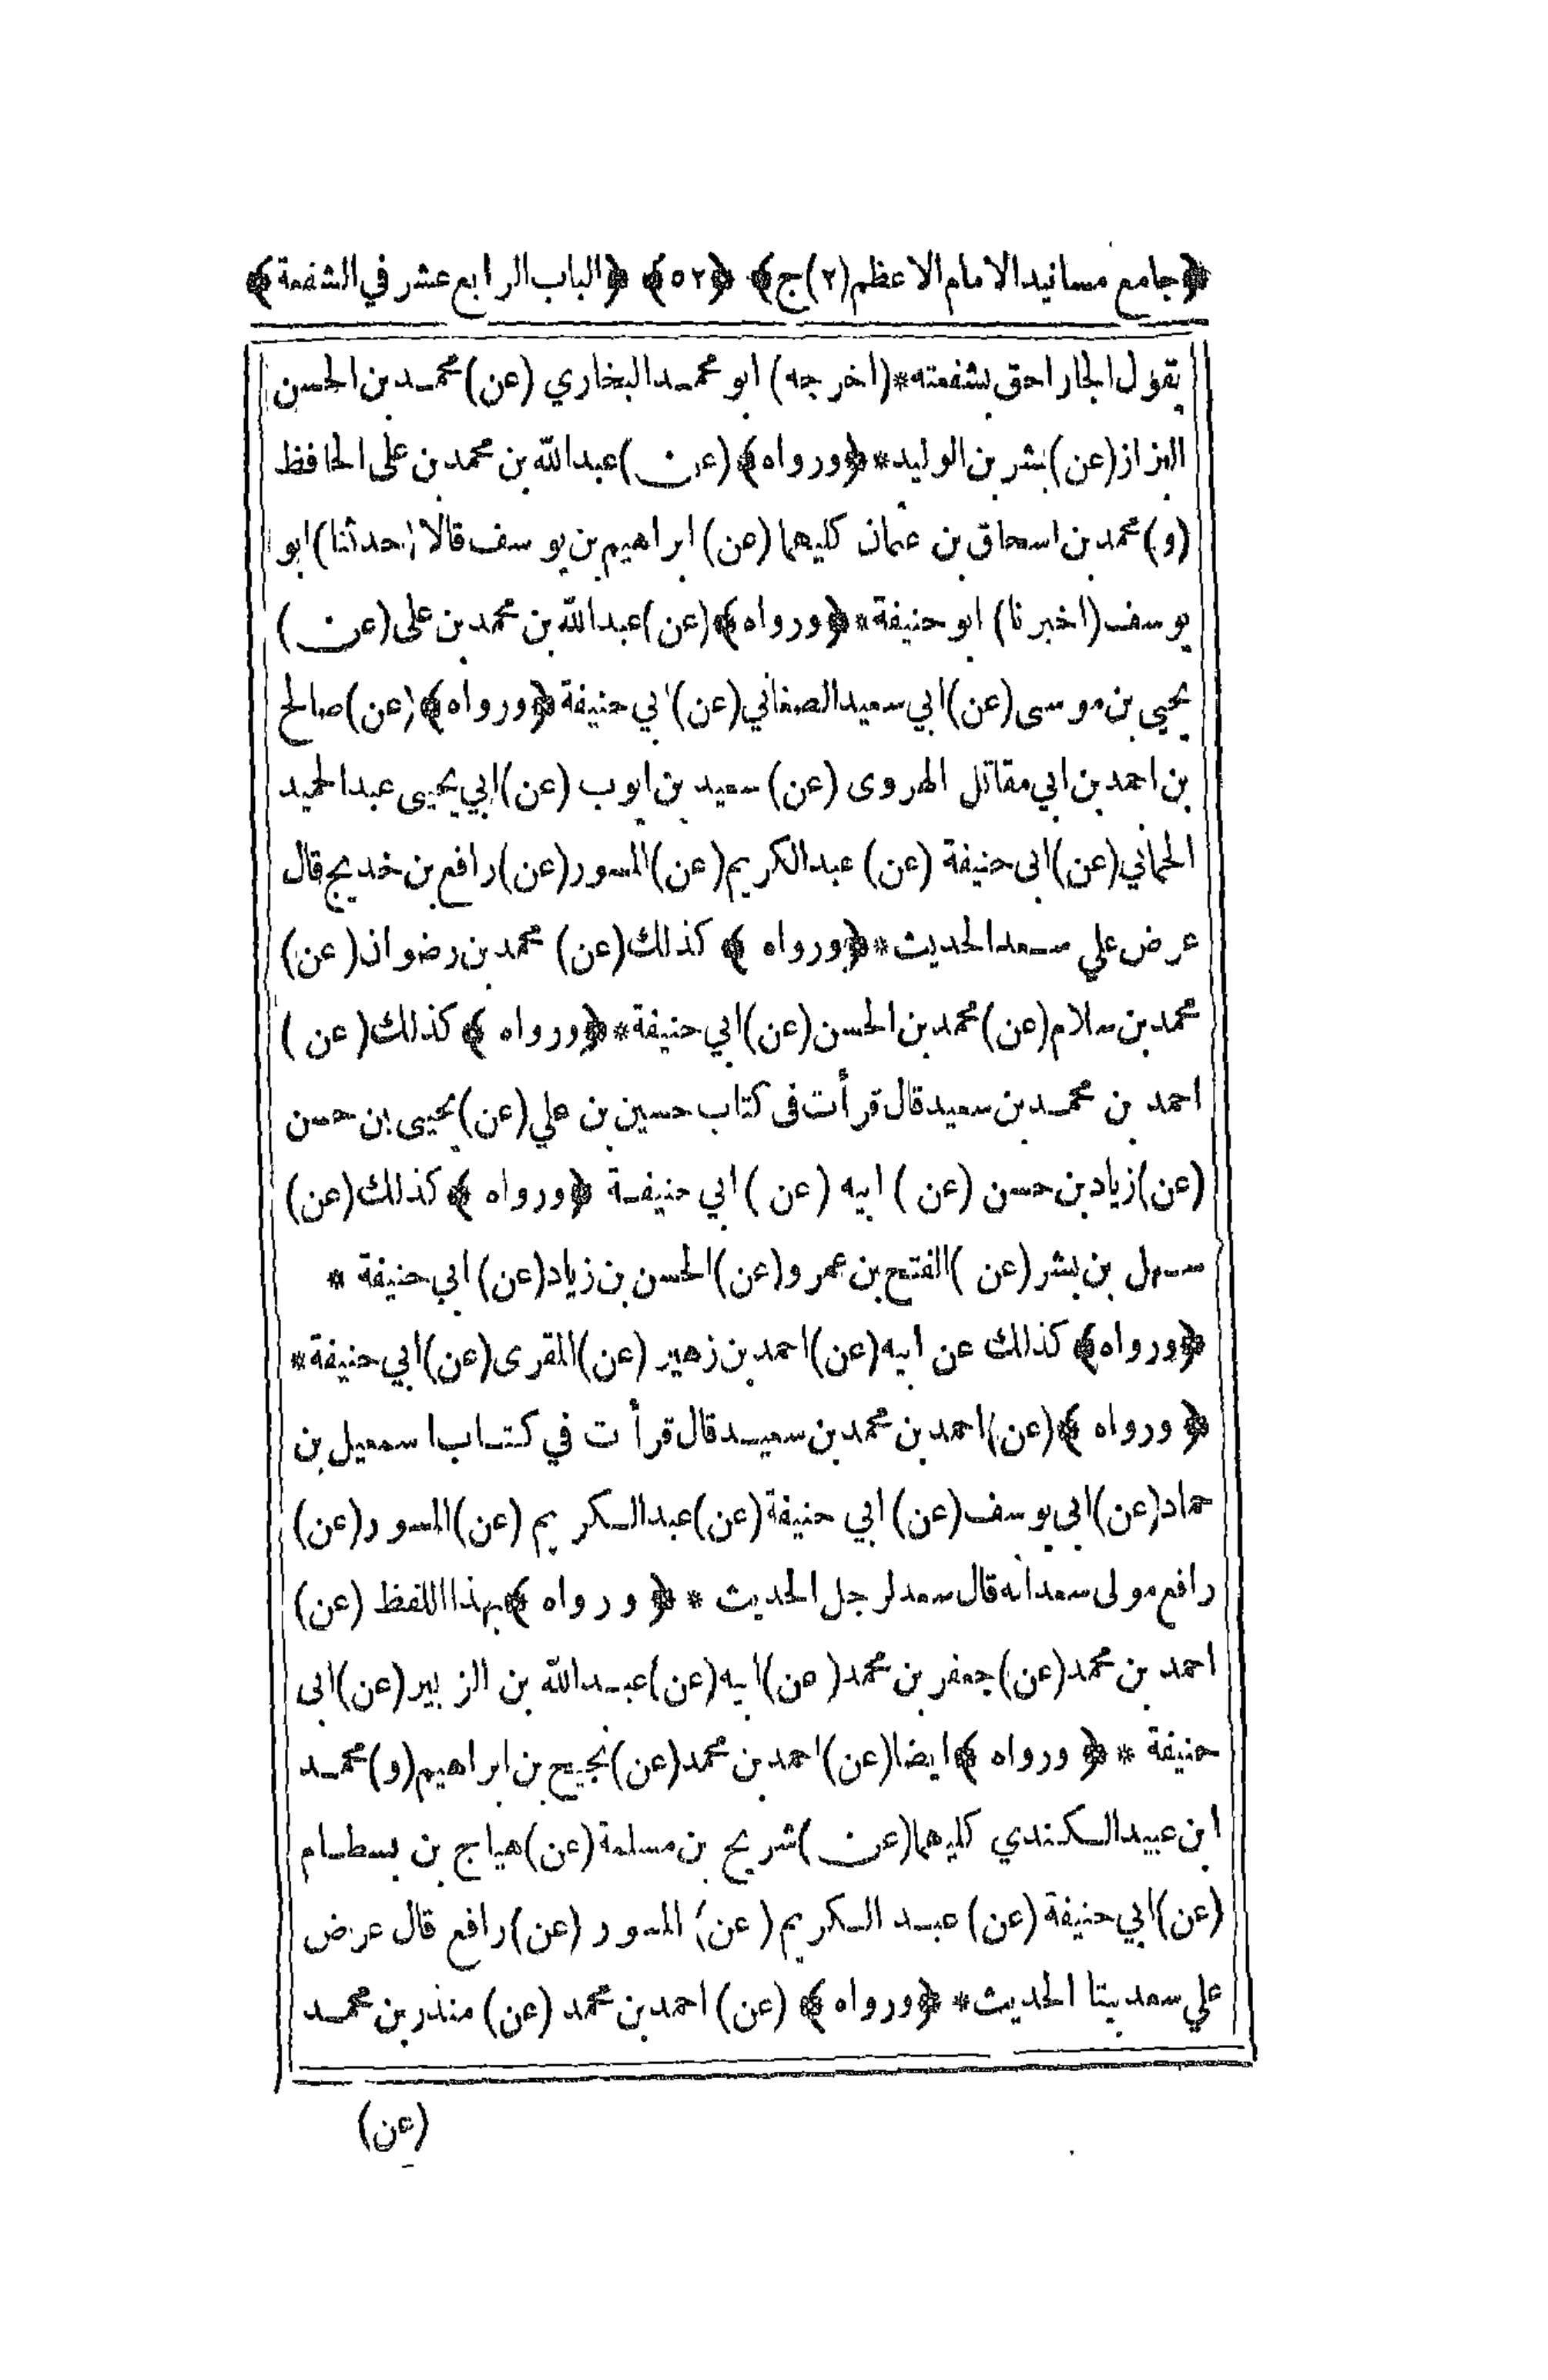 ﴿جامع مسانيد الامام الاعظم(٢)ج﴾ ﴿٥٢﴾ ﴿الباب الرابع عشر في الشفعة﴾
يقول الجار احق بشفعته*(اخرجه) ابو محمد البخاري (عن) محمد بن الحسن
البزاز(عن) بشر بن الوليد*﴿ورواه﴾(عن)عبدالله بن محمد بن على الحافظ
(و)محمد بن اسحاق بن عثمان كليهما (عن) ابراهيم بن يوسف قالا(حدثنا) ابو
يوسف(اخبرنا) ابو حنيفة*﴿ورواه﴾(عن)عبدالله بن محمد بن على(عن)
يحيى بن موسى(عن)ابي سعيد الصغاني(عن)ابي حنيفة ﴿ورواه﴾(عن)صالح
بن احمد بن ابي مقاتل الهروى (عن) سعيد بن ايوب (عن)ابي يحيى عبد الحميد
الحماني(عن)ابى حنيفة (عن) عبدالكريم(عن)المسور(عن)رافع بن خديج قال
عرض علي سعد الحديث*﴿ورواه﴾ كذلك(عن) محمد بن رضوان(عن)
محمد بن سلام(عن)محمد بن الحسن(عن)ابي حنيفة*﴿ورواه﴾ كذلك(عن)
احمد بن محمد بن سعيد قال قرأت فى كتاب حسين بن علي(عن)يحيى بن حسن
(عن)زياد بن حسن (عن) ابيه (عن) ابي حنيفة ﴿ورواه﴾ كذلك(عن)
سهل بن بشر(عن)الفتح بن عمرو(عن)الحسن بن زياد(عن)ابي حنيفة *
﴿ورواه﴾ كذلك عن ابيه(عن)احمد بن زهير (عن)المقرى(عن)ابي حنيفة*
﴿ورواه﴾(عن)احمد بن محمد بن سعيد قال قرأت في كتاب اسمعيل بن
حماد(عن)ابى يوسف(عن)ابي حنيفة(عن)عبدالكريم (عن)المسور(عن)
رافع مولى سعد انه قال سعد لرجل الحديث *﴿ورواه﴾بهذا اللفظ (عن)
احمد بن محمد(عن)جعفر بن محمد(عن)ابيه(عن)عبدالله بن الزبير(عن)ابى
حنيفة *﴿ورواه﴾ايضا(عن)احمد بن محمد(عن)نجيح بن ابراهيم(و)محمد
ابن عبيد الكندي كليهما(عن)شريح بن مسلمة(عن)هياج بن بسطام
(عن)ابي حنيفة (عن) عبد الكريم(عن) المسور (عن)رافع قال عرض
علي سعد بيتا الحديث*﴿ورواه﴾ (عن) احمد بن محمد (عن) منذر بن محمد
(عن)